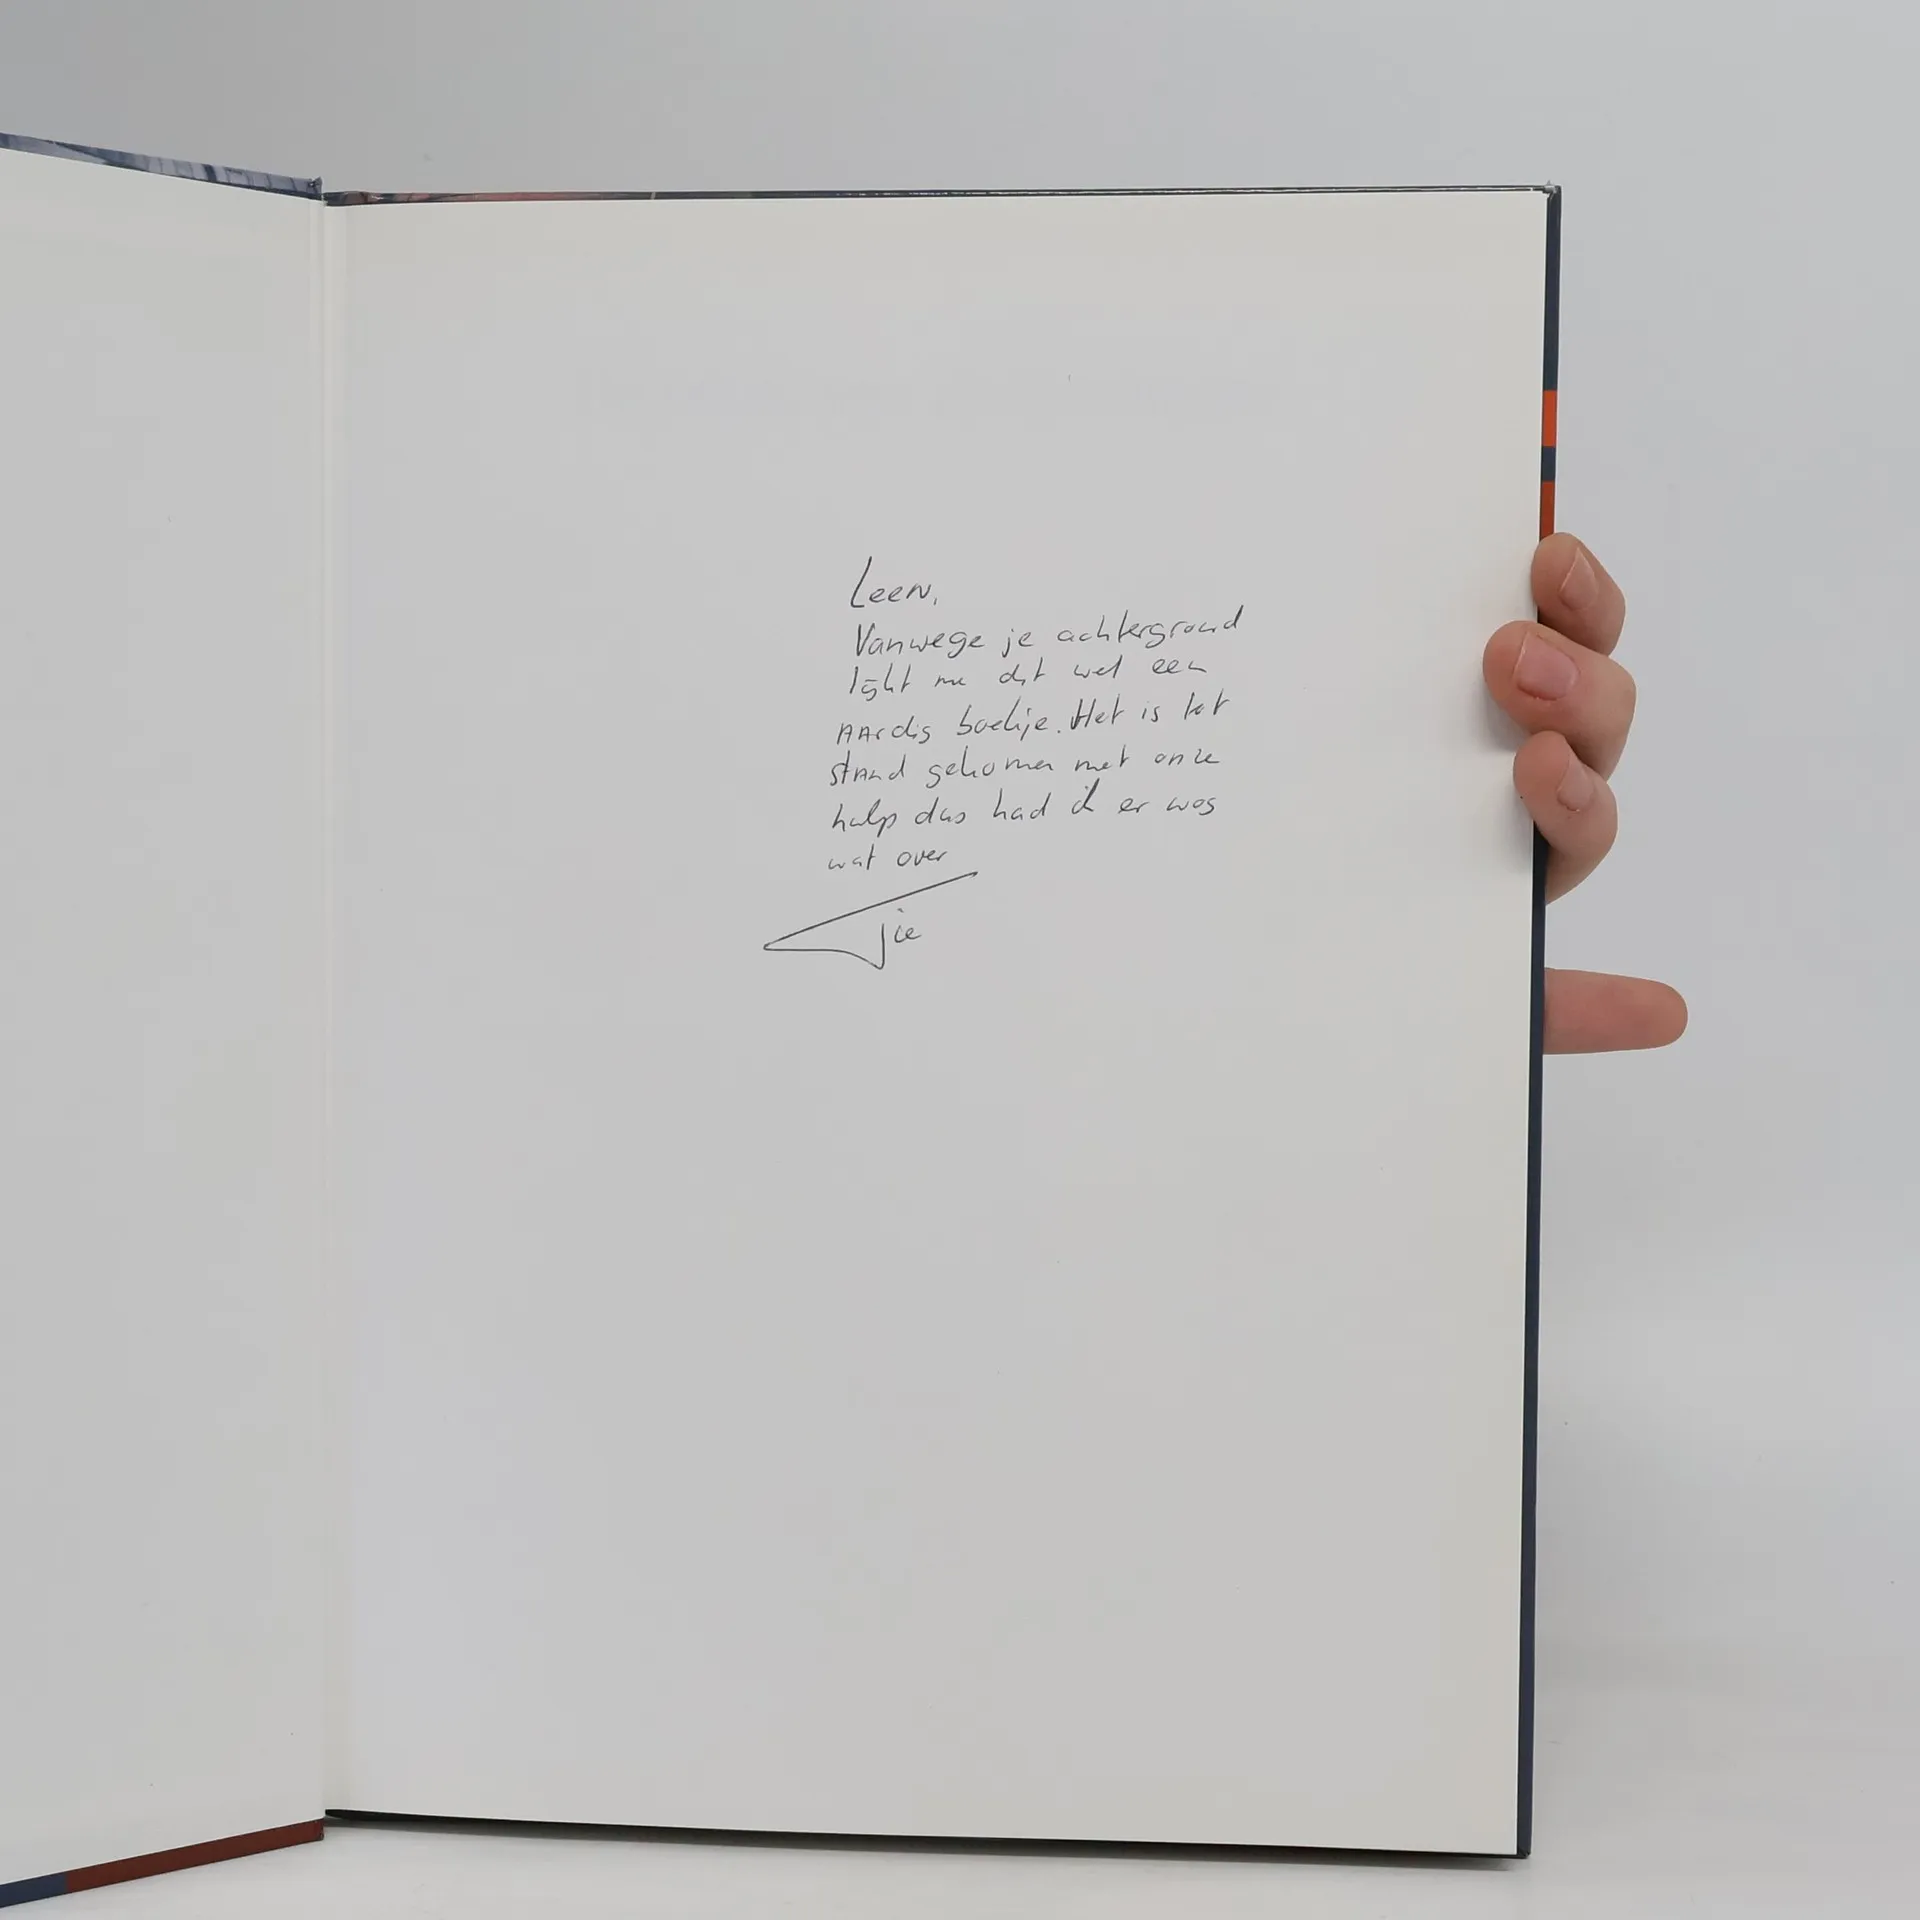 Leen,
Vanwege je achtergrond
lijkt me dit wel een
aardig boekje. Het is tot
stand gekomen met onze
hulp dus had ik er nog
wat over